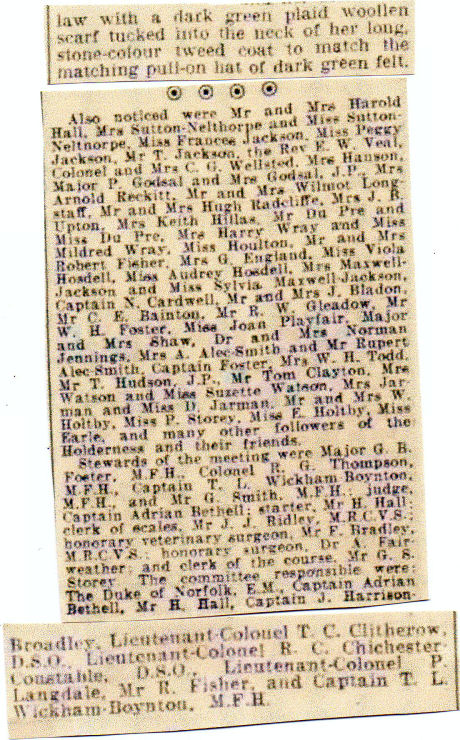 law with a dark green plaid woollen
scarf tucked into the neck of her long,
stone-colour tweed coat to match the
matching pull-on hat of dark green felt.
Also noticed were Mr and Mrs Harold
Hall, Mrs Sutton-Nelthorpe and Miss Sutton-
Nelthorpe, Miss Frances Jackson, Miss Peggy
Jackson, Mr T. Jackson, the Rev E. W. Veal,
Colonel and Mrs C. G. Wellsted, Mrs Hanson,
Major P. Godsal and Mrs Godsal, J.P., Mrs
Arnold Reckitt, Mr and Mrs Wilmot Long-
staff, Mr and Mrs Hugh Radcliffe, Mrs J. H.
Upton, Mrs Keith Hillas, Mr Du Pre and
Miss Du Pre, Mrs Harry Wray and Miss
Mildred Wray, Miss Houlton, Mr and Mrs
Robert Fisher, Mrs G. England, Miss Viola
Hosdell, Miss Audrey Hosdell, Mrs Maxwell-
Jackson and Miss Sylvia Maxwell-Jackson,
Captain N. Cardwell, Mr and Mrs J. Bladon,
Mr C. E. Bainton, Mr R. W. Gleadow, Mr
W. H. Foster, Miss Joan Playfair, Major
and Mrs Shaw, Dr and Mrs Norman
Jennings, Mrs A. Alec-Smith and Mr Rupert
Alec-Smith, Captain Foster, Mrs W. H. Todd,
Mr T. Hudson, J.P., Mr Tom Clayton, Mrs
Watson and Miss Suzette Watson, Mrs Jar-
man and Miss D. Jarman, Mr and Mrs W.
Holtby, Miss P. Storey, Miss E. Holtby, Miss
Earle, and many other followers of the
Holderness and their friends.
Stewards of the meeting were Major G. B.
Foster, M.F.H., Colonel R. G. Thompson,
M.F.H., Captain T. L. Wickham-Boynton,
M.F.H., and Mr G. Smith, M.F.H.; judge,
Captain Adrian Bethell; starter, Mr H. Hall;
clerk of scales, Mr J. J. Ridley, M.R.C.V.S.;
honorary veterinary surgeon, Mr F. Bradley,
M.R.C.V.S.; honorary surgeon, Dr A. Fair-
weather; and clerk of the course, Mr G. S.
Storey. The committee responsible were:
The Duke of Norfolk, E.M., Captain Adrian
Bethell, Mr H. Hall, Captain J. Harrison-
Broadley, Lieutenant-Colonel T. C. Clitherow,
D.S.O., Lieutenant-Colonel R. C. Chichester-
Constable, D.S.O., Lieutenant-Colonel P.
Langdale, Mr R. Fisher, and Captain T. L.
Wickham-Boynton, M.F.H.